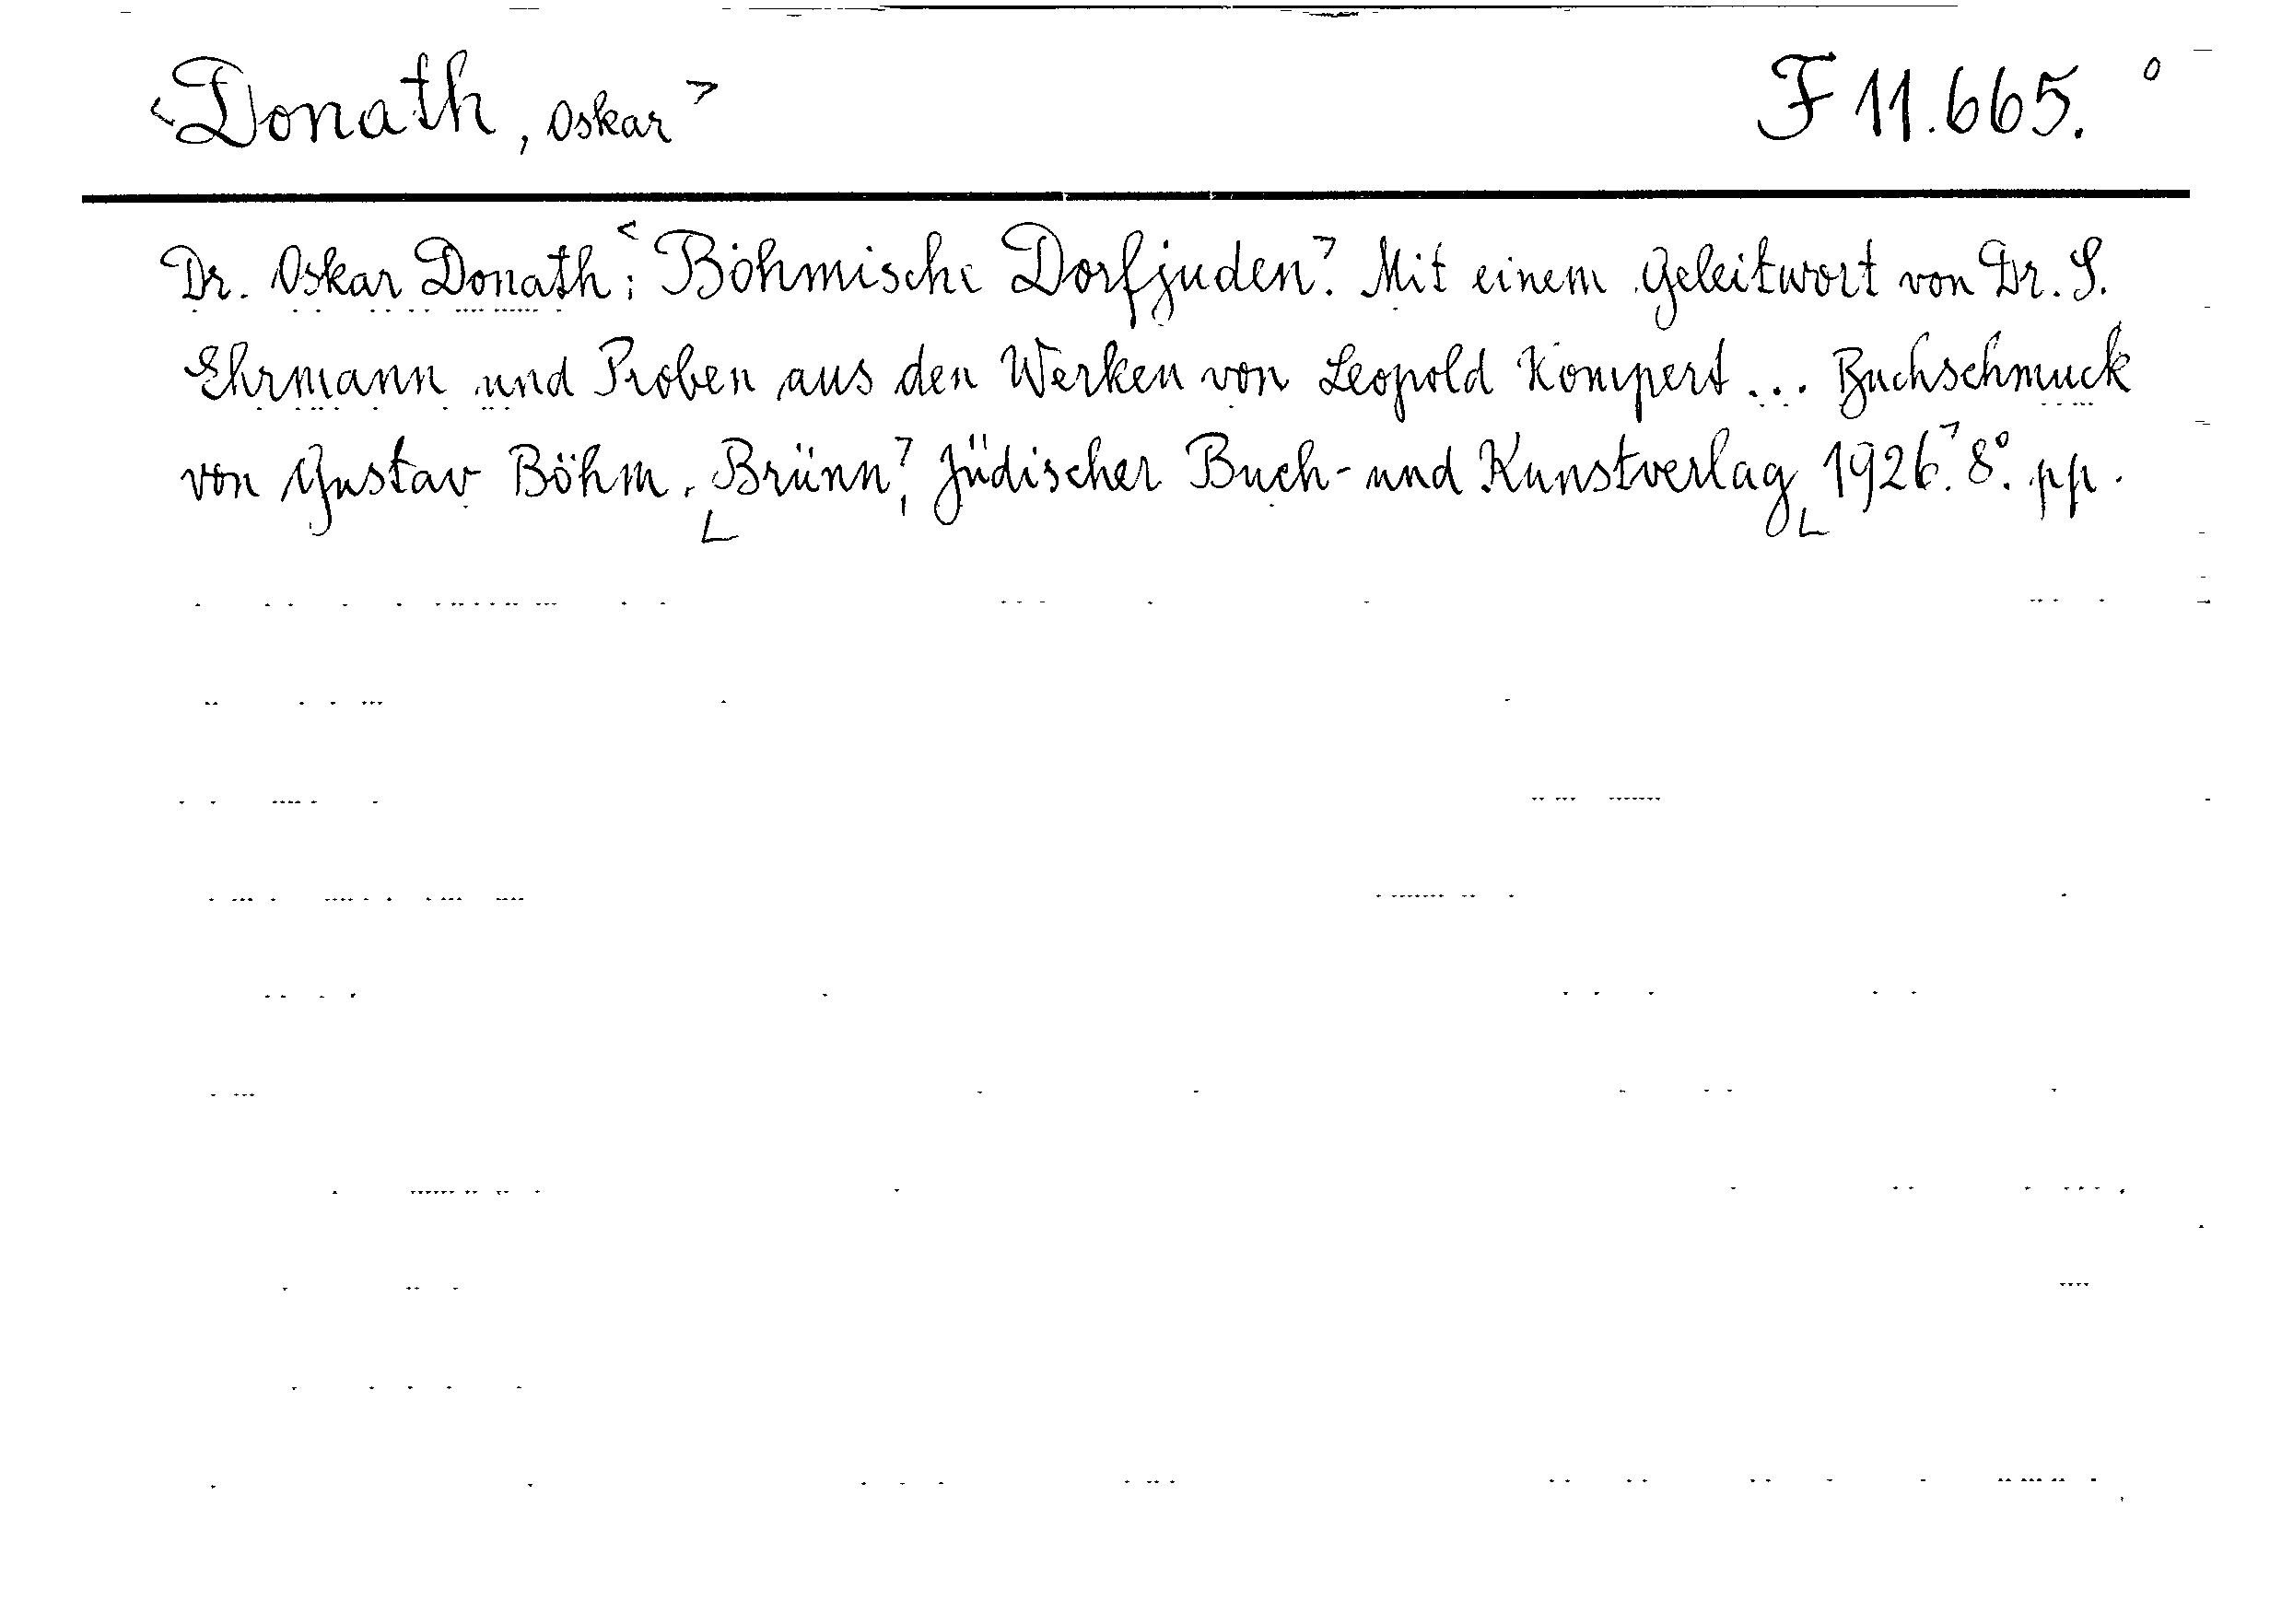 <Donath, Oskar> F 11.665. °
Dr. Oskar Donath: <Böhmische Dorfjuden>. Mit einem Geleitwort von Dr. S.
Ehrmann und Proben aus den Werken von Leopold Kompert... Buchschmuck
von Gustav Böhm. <Brünn>, Jüdischer Buch- und Kunstverlag <1926>. 8°. pp.